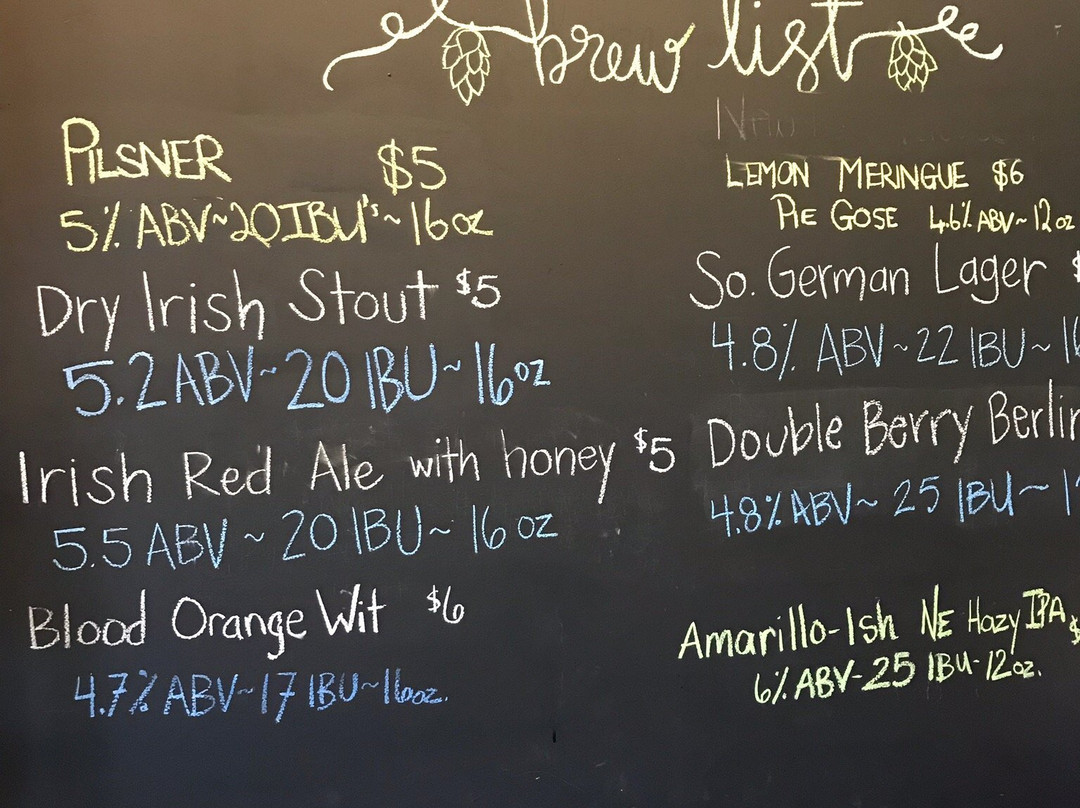 brew list
PILSNER $5
5% ABV~20 IBU's~16oz
Dry Irish Stout $5
5.2 ABV~20 IBU~16oz
Irish Red Ale with honey $5
5.5 ABV ~ 20 IBU~ 16 oz
Blood Orange Wit $6
4.7% ABV~17 IBU~16oz.
LEMON MERINGUE $6
PIE GOSE 4.6% ABV~12oz
So. German Lager $
4.8% ABV~22 IBU~
Double Berry
4.8% ABV~ 25 IBU~
Amarillo-Ish NE Hazy IPA $
6% ABV-25 IBU-12oz.